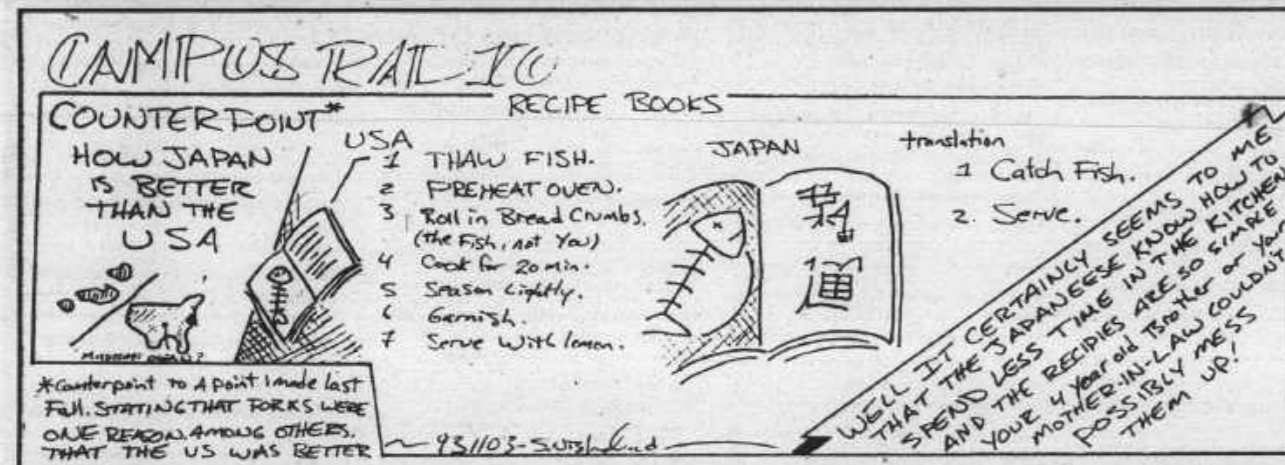 CAMPUS
COUNTERPOINT*
HOW JAPAN
IS BETTER
THAN THE
USA
*Counterpoint to A point I made last
Fall. STATING THAT FORKS WERE
ONE REASON. AMONG OTHERS.
THAT THE US WAS BETTER
RECIPE BOOKS
USA
1 THAW FISH.
2 PREHEAT OVEN.
3 Roll in Bread Crumbs.
(the Fish, not You)
4 Cook for 20 min.
5 Season Lightly.
6 Garnish.
7 Serve With lemon.
JAPAN
translation
1 Catch Fish.
2. Serve.
WELL IT CERTAINCY SEEMS TO ME
THAT THE JAPANEESE KNOW HOW TO
SPEND LESS TIME IN THE KITCHEN
AND THE RECIPIES ARE SO SIMPLE
YOUR 4 year old Brother or Your
MOTHER-IN-LAW COULDN'T
POSSIBLY MESS
THEM UP!
931103